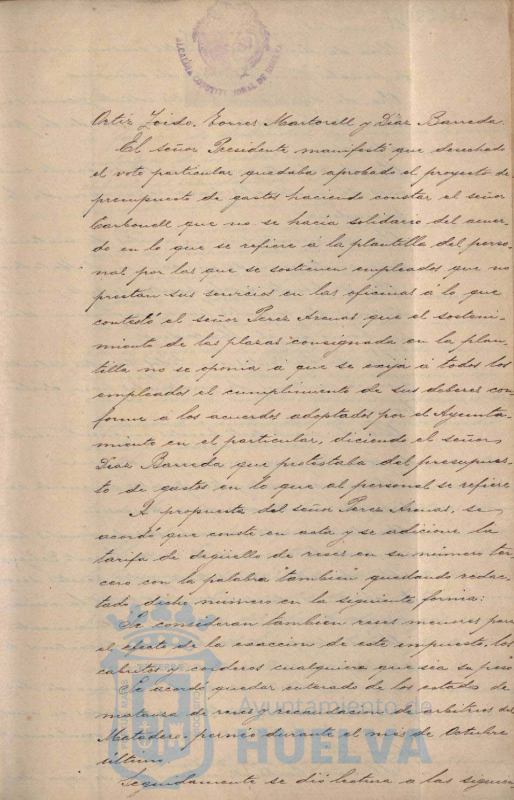 ALCALDIA CONSTITUCIONAL DE HUELVA
Ortiz, Zoido, Torres Martorell y Diaz Barreda.
El señor Presidente manifestó que desechado
el voto particular quedaba aprobado el proyecto de
presupuesto de gastos haciendo constar el señor
Carbonell que no se hacia solidario del acuer-
do en lo que se refiere á la plantilla del perso-
nal por las que se sostienen empleados que no
prestan sus servicios en las oficinas á lo que
contestó el señor Perez Arenas que el sosteni-
miento de las plazas consignada en la plan-
tilla no se oponia á que se exija á todos los
empleados el cumplimiento de sus deberes con-
forme á los acuerdos adoptados por el Ayunta-
miento en el particular, diciendo el señor
Diaz Barreda que protestaba del presupues-
to de gastos en lo que al personal se refiere
A propuesta del señor Perez Arenas, se
acordó que conste en acta y se adicione la
tarifa de degüello de reses en su número ter-
cero con la palabra "tambien" quedando redac-
tado dicho número en la siguiente forma:
Se consideran tambien reses menores para
el efecto de la exaccion de este impuesto, los
cabritos y corderos cualquiera que sea su peso
Se acordó quedar enterado de los estados de
matanza de reses y recaudacion de arbitrios del
Matadero permio durante el mes de Octubre
último.
Seguidamente se dió lectura a las siguien
Ayuntamiento de
HUELVA